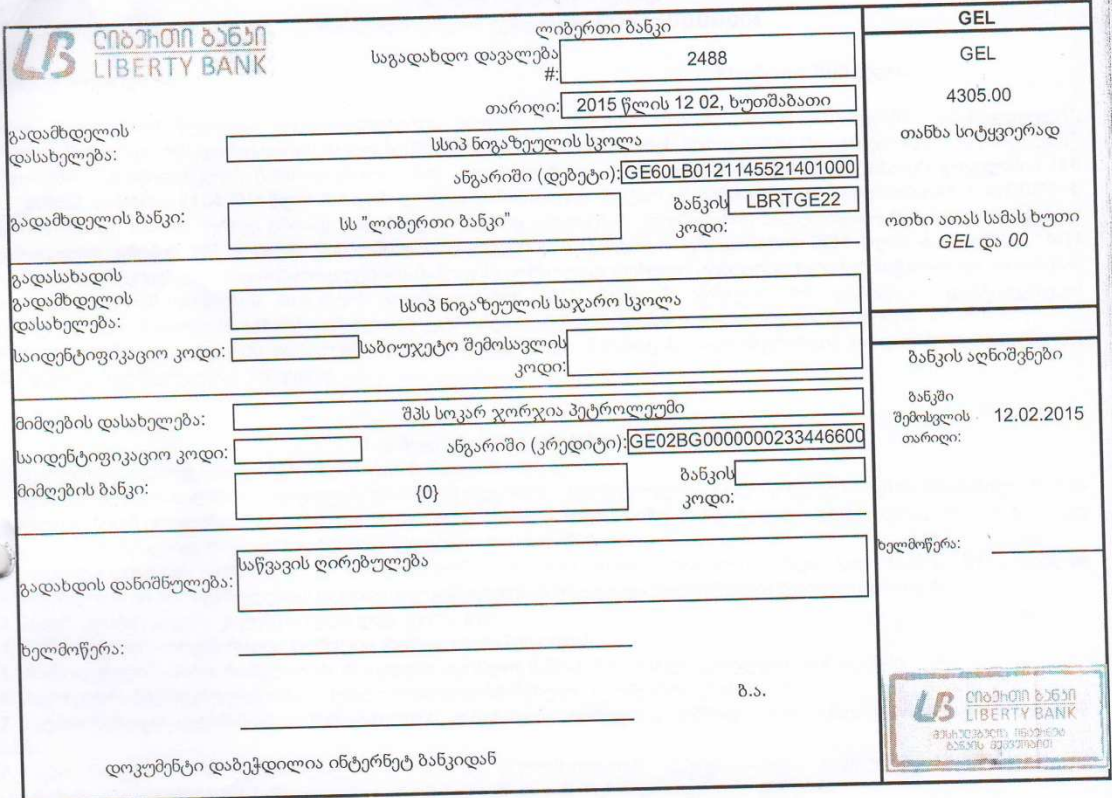 ლიბერთი ბანკი
LIBERTY BANK
ლიბერთი ბანკი
საგადახდო დავალება #: 2488
თარიღი: 2015 წლის 12 02, ხუთშაბათი
გადამხდელის დასახელება: სსიპ ნიგაზეულის სკოლა
ანგარიში (დებეტი): GE60LB0121145521401000
გადამხდელის ბანკი: სს "ლიბერთი ბანკი"
ბანკის კოდი: LBRTGE22
გადასახადის გადამხდელის დასახელება: სსიპ ნიგაზეულის საჯარო სკოლა
საიდენტიფიკაციო კოდი:
საბიუჯეტო შემოსავლის კოდი:
მიმღების დასახელება: შპს სოკარ ჯორჯია პეტროლეუმი
საიდენტიფიკაციო კოდი:
ანგარიში (კრედიტი): GE02BG0000000233446600
მიმღების ბანკი: {0}
ბანკის კოდი:
გადახდის დანიშნულება: საწვავის ღირებულება
ხელმოწერა:
ბ.ა.
დოკუმენტი დაბეჭდილია ინტერნეტ ბანკიდან
GEL
GEL
4305.00
თანხა სიტყვიერად
ოთხი ათას სამას ხუთი
GEL და 00
ბანკის აღნიშვნები
ბანკში
შემოსვლის 12.02.2015
თარიღი:
ხელმოწერა:
LB ლიბერთი ბანკი
LIBERTY BANK
შესრულებულია ინტერნეტ
ბანკის მეშვეობით